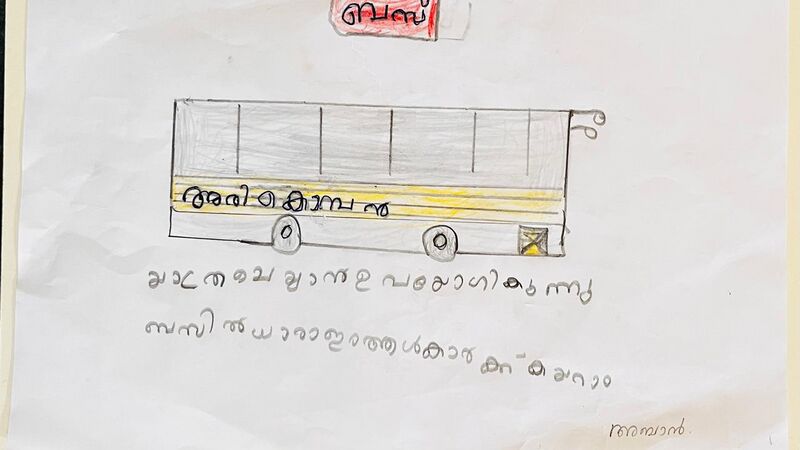 ബസ്
അരികൊമ്പൻ
യാത്രചെയ്യാൻഉപയോഗികുന്നു
ബസിൽധാരാളംആൾകാർക്ക്കയറാം
അമ്പാൻ.